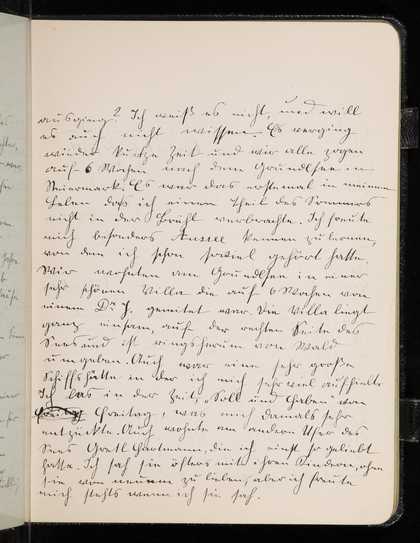 ausging? Ich weiß es nicht, und will
es auch nicht wissen. Es verging
wieder kurtze Zeit und wir alle zogen
auf 6 Wochen nach dem Grundlsee in
Steiermark. Es war das erstemal in meinem
Leben daß ich einen Theil des Sommers
nicht in der Brühl verbrachte. Ich freute
mich besonders Aussee kennen zu lernen,
von dem ich schon soviel gehört hatte.
Wir wohnten am Grundlsee in einer
sehr schönen Villa die auf 6 Wochen von
einem Dr. J. gemitet war. Die Villa liegt
ganz einsam, auf der rechten Seite des
Sees und ist ringsherum von Wald
umgeben. Auch war eine sehr große
Schiffshütte in der ich mich sehr viel aufhielte
Ich las in der Zeit, "Soll und Haben" von
Freitag, was mich damals sehr
entzückte. Auch wohnte am andern Ufer des
Sees Gretl Hartmann, die ich einst so geliebt
hatte. Ich sah sie öfters mit ihren Kindern, ohne
sie von neuem zu lieben, aber ich freute
mich stehts wenn ich sie sah.